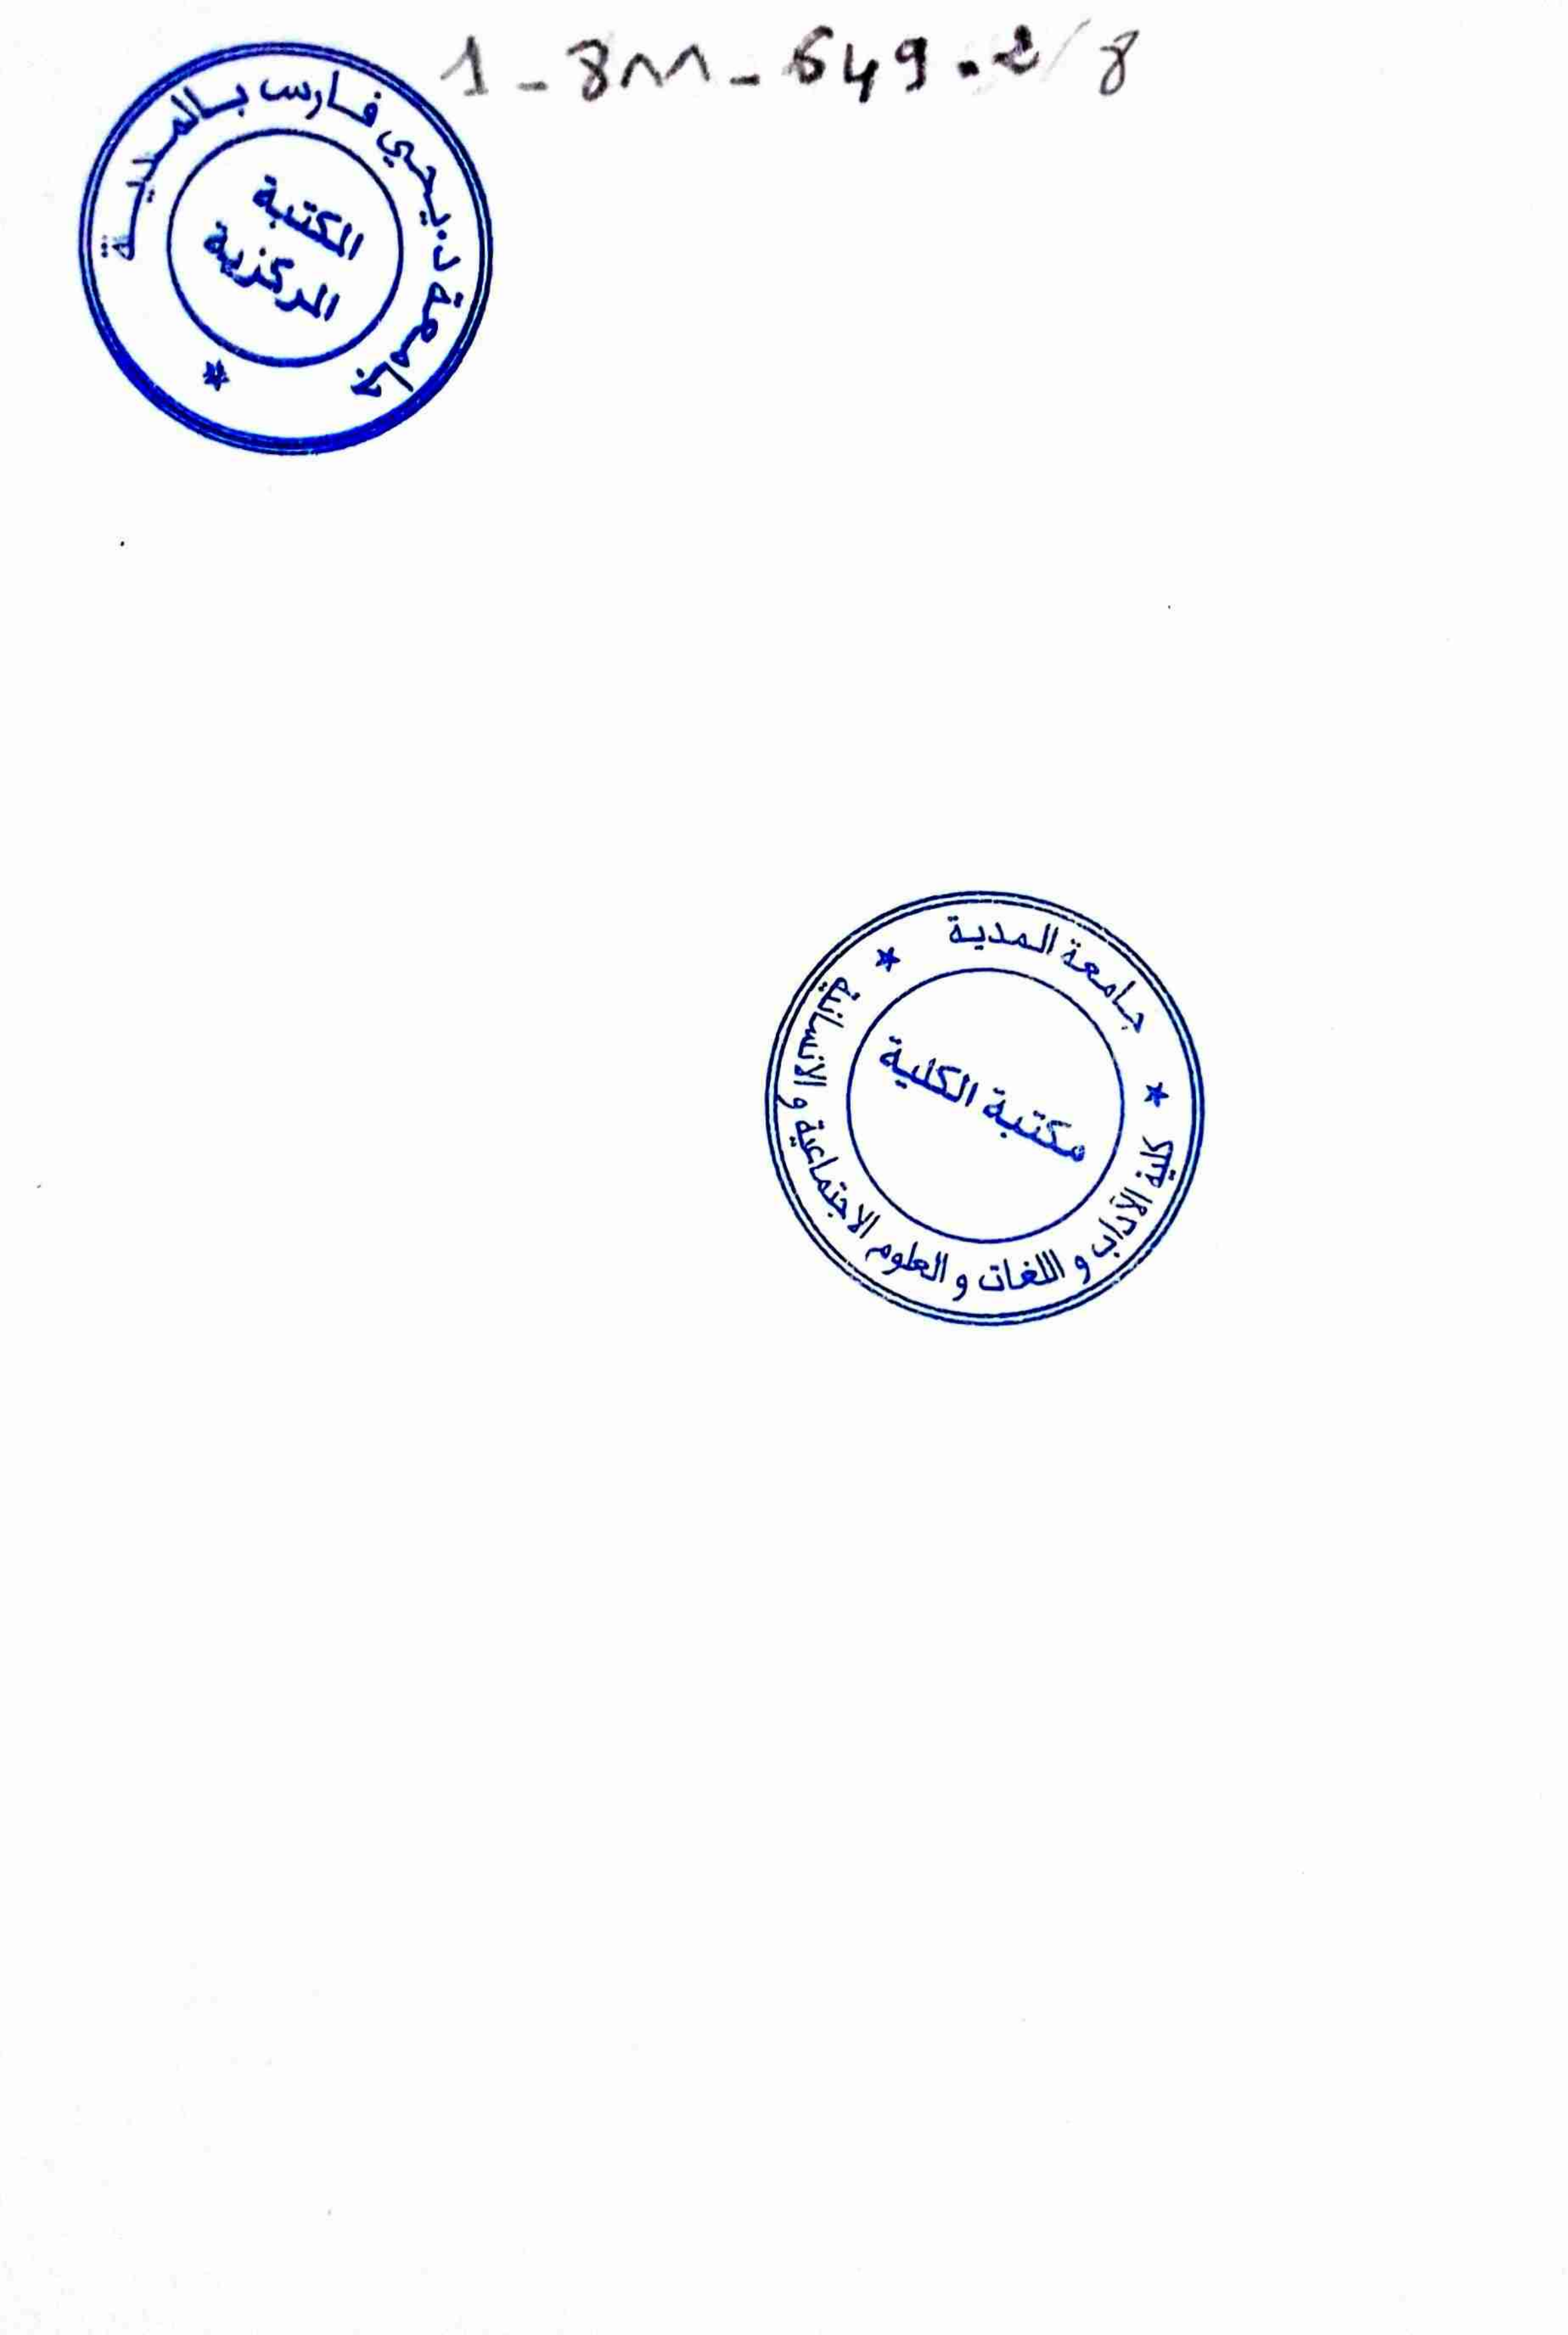 1 - 811 - 649 . 2 / 8
جامعة د. يحي فارس بالمدية
المكتبة
المركزية
جامعة المدية
مكتبة الكلية
كلية الآداب و اللغات و العلوم الاجتماعية و الانسانية